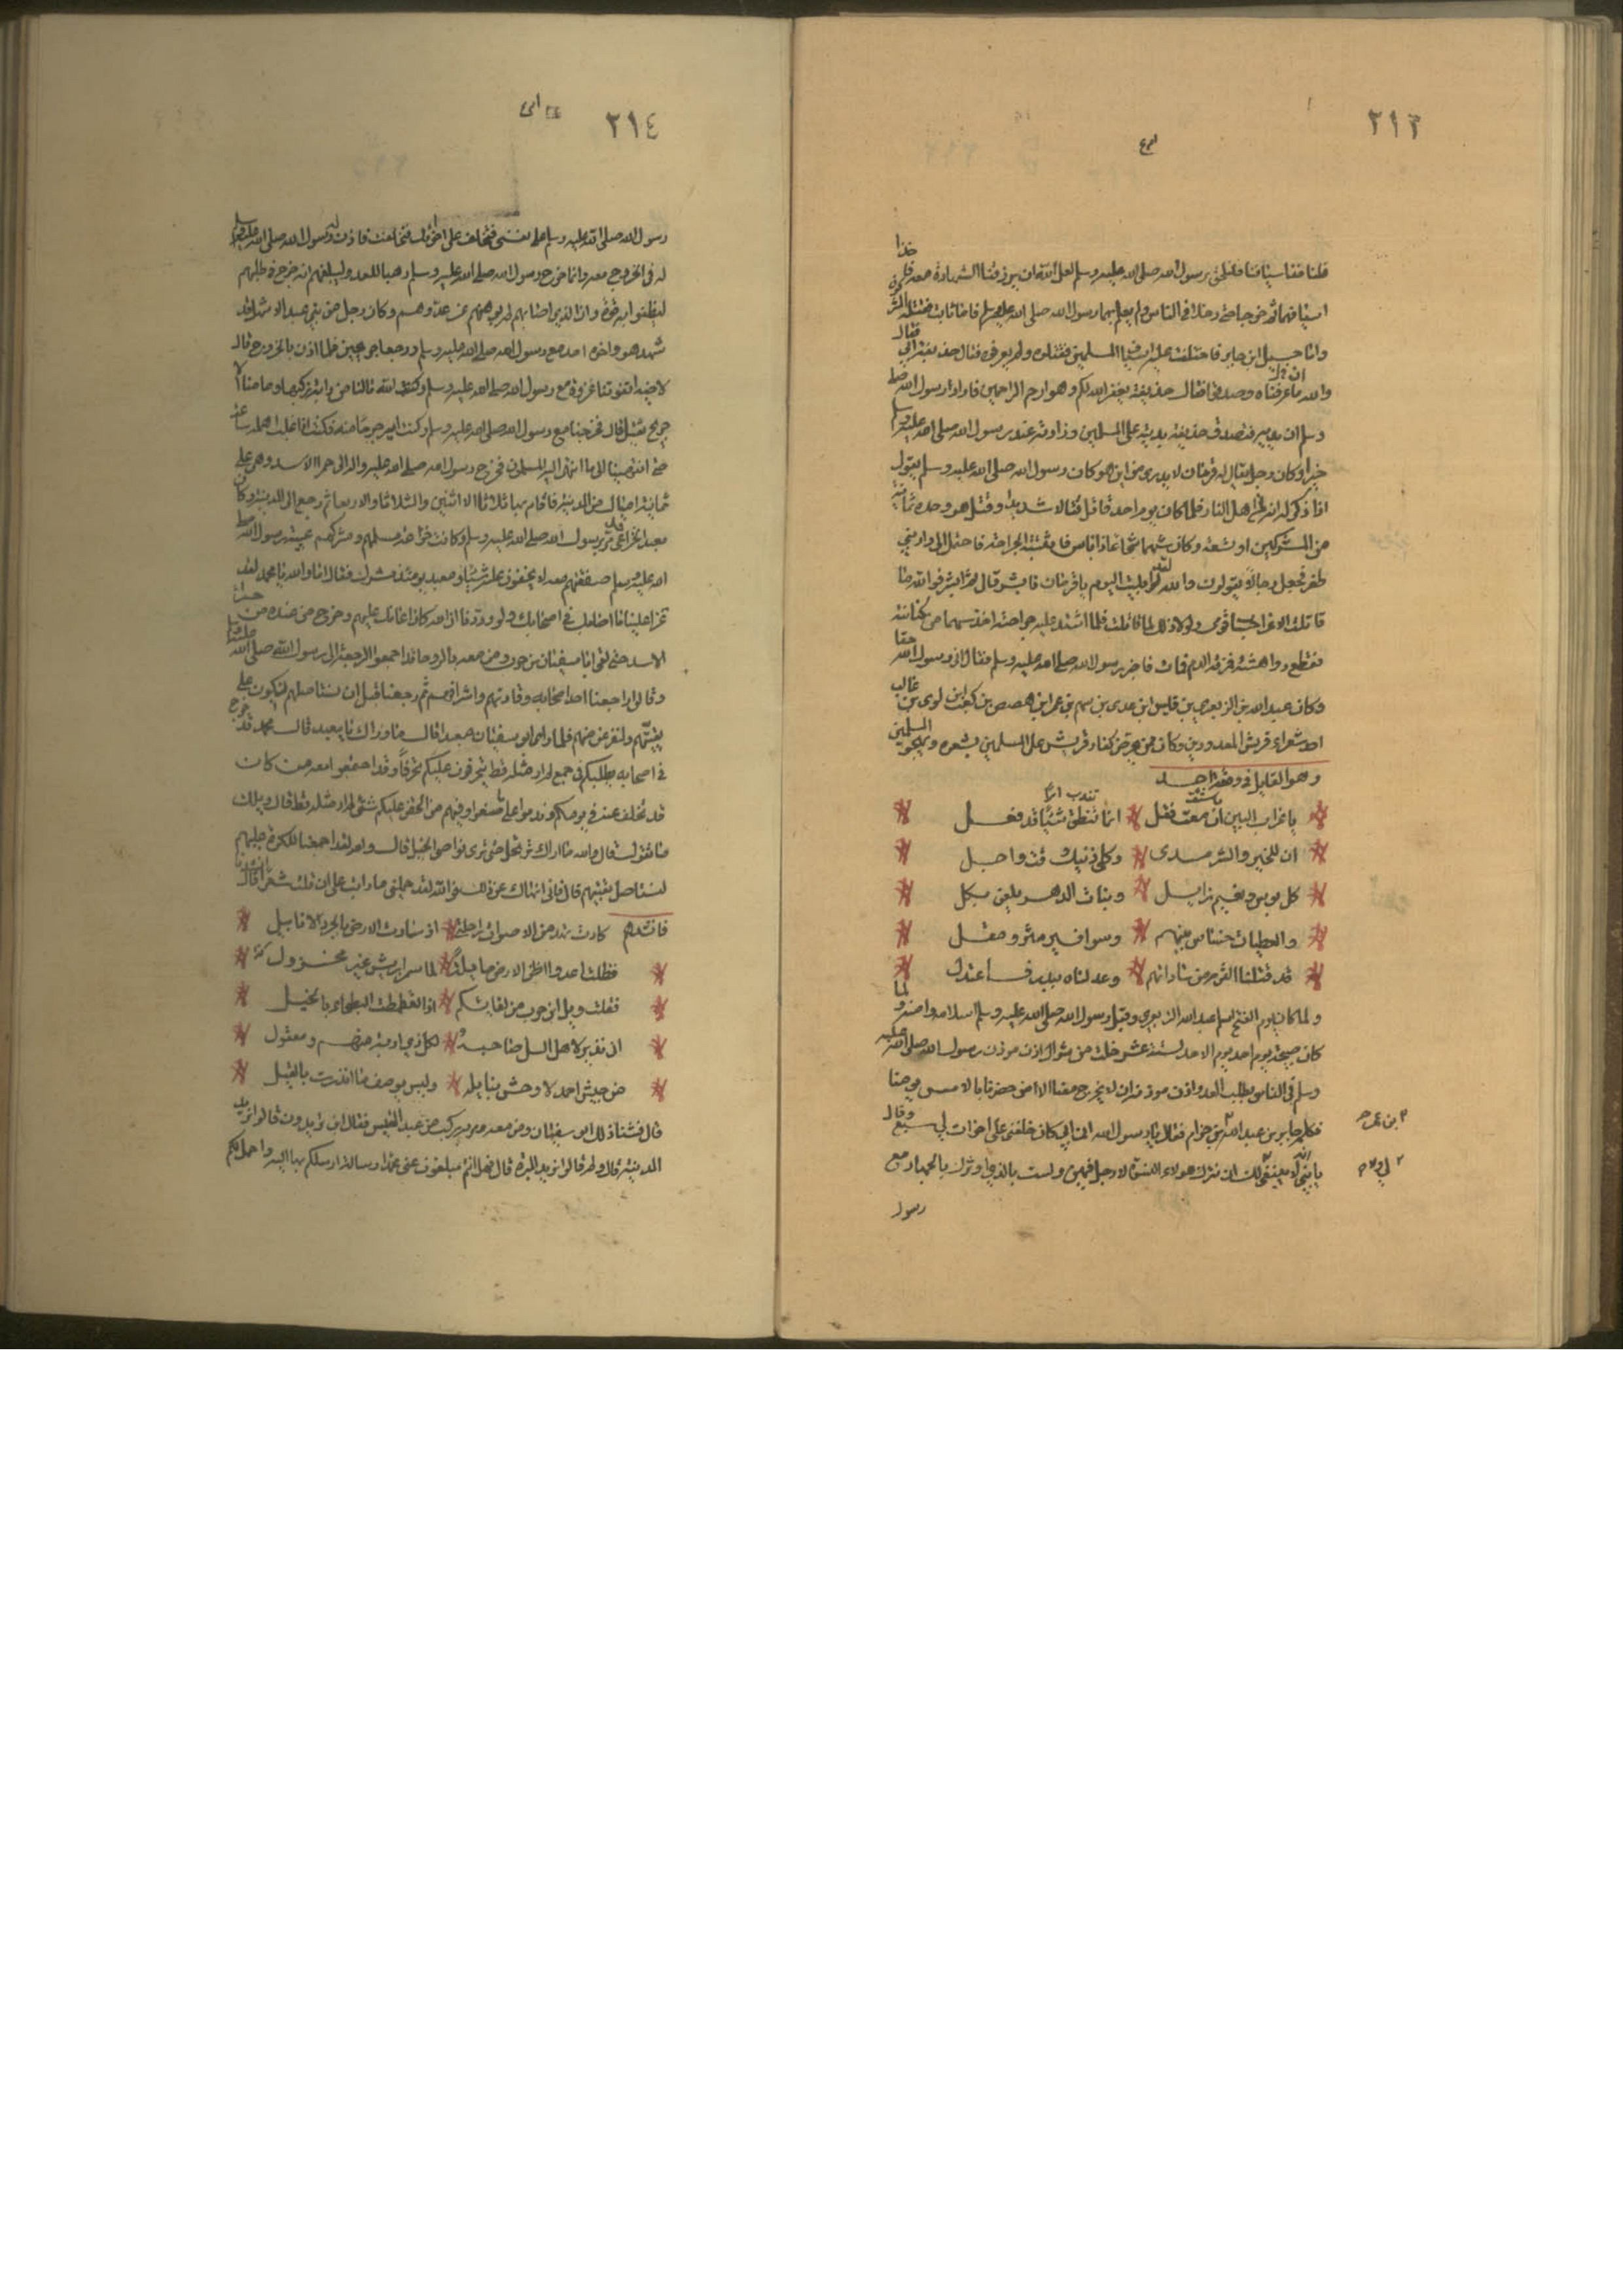 ٢١٣
فلنأخذ اسيافنا فنلحق برسول الله صلى الله عليه وسلم لعل الله ان يرزقنا الشهادة معه فاخذا
اسيافهما ثم خرجا حتى دخلا في الناس ولم يعلم بهما رسول الله صلى الله عليه وسلم فاما ثابت فقتله المشركون
واما حسيل ابن جابر فاختلفت عليه اسياف المسلمين فقتلوه ولم يعرفوه فقال حذيفة ابي فقال
والله ان عرفناه وصدقوا فقال حذيفة يغفر الله لكم وهو ارحم الراحمين فاراد رسول الله صلى
وسلم ان يديه فتصدق حذيفة بديته على المسلمين وزادته عند رسول الله صلى الله عليه وسلم
خيرا وكان رجل يقال له قزمان لا يدرى من اين هو كان رسول الله صلى الله عليه وسلم يقول
اذا ذكر له انه لمن اهل النار فلما كان يوم احد قاتل قتالا شديدا وقتل هو وحده ثمانية
من المشركين او تسعة وكان شهما شجاعا ذا باس فاثبتته الجراحة فاحتمل الى دار بني
ظفر فجعل رجالا يقولون والله لقد ابليت اليوم يا قزمان فابشر قال بم ابشر فوالله ما
قاتلت الا عن احساب قومي ولولا ذلك لما قاتلت فلما اشتد عليه جراحته اخذ سهما من كنانته
فقطع رواهشه فنزفه الدم فمات فاخبر رسول الله صلى الله عليه وسلم فقال اني رسول الله حقا
وكان عبد الله بن الزبعرى بن قيس ابن عدى بن سهم بن عمرو ابن هصيص بن كعب ابن لوى بن غالب
احد شعراء قريش المعدودين وكان من يحرض كفار قريش على المسلمين بشعره ويهجو المسلمين
وهو القايل في وقعة احد
يا غراب البين اسمعت فقل * انما تنطق شيئا قد فعل *
ان للخير وللشر مدى * وكلى ذينك وقت واجل *
كل بوس ونعيم زايل * وبنات الدهر يلعبن بكل *
والعطيات خساس بينهم * وسوا قبر مثر ومقل *
قد قتلنا القرم من ساداتهم * وعدلناه ببدر فاعتدل *
ولما كان يوم الفتح اسلم عبد الله الزبعرى وقبل رسول الله صلى الله عليه وسلم اسلامه واعتذر ولما
كان صبيحة يوم احد يوم الاحد لستة عشر خلت من شوال اذن موذن رسول الله صلى الله عليه
وسلم في الناس بطلب العدو واذن موذنه ان لا يخرج معنا الا من حضرنا بالامس يومنا
فكلمه جابر بن عبد الله بن حزام فقال يا رسول الله ان ابي كان خلفني على اخوات لي سبع وقال
يا بني انه لا ينبغي لك ان نترك هولاء النسوة لا رجل فيهن ولست بالذي اوثرك بالجهاد مع
رسول
٢١٤
رسول الله صلى الله عليه وسلم على نفسي فتخلف على اخواتك فتخلفت فاذن له رسول الله صلى الله عليه وسلم
له في الخروج معه وانما خرج رسول الله صلى الله عليه وسلم رهبا للعدو وليبلغهم انه خرج في طلبهم
ليظنوا به قوة وان الذي اصابهم لم يوهنهم عن عدوهم وكان رجل من بني عبد الاشهل قد
شهد هو واخوه احد مع رسول الله صلى الله عليه وسلم ورجعا جريحين فلما اذن بالخروج قال
لاخيه اتفوتنا غزوة مع رسول الله صلى الله عليه وسلم والله ما لنا من دابة نركبها وما منا الا
جريح ثقيل قال فخرجنا مع رسول الله صلى الله عليه وسلم وكنت ايسر جرحا منه فكنت اذا غلب احمله ساعة
حتى انتهينا الى ما انتهى اليه المسلمون فخرج رسول الله صلى الله عليه وسلم الى حمرا الاسد وهي على
ثمانية اميال من المدينة فاقام بها ثلاثا الاثنين والثلاثا والاربعا ثم رجع الى المدينة وكان
معبد الخزاعي مر برسول الله صلى الله عليه وسلم وكانت خزاعة مسلمهم ومشركهم عيبة رسول الله صلى
الله عليه وسلم صفقتهم معه لا يخفون عليه شيئا ومعبد يومئذ مشرك فقال اما والله يا محمد لقد
عز علينا ما اصابك في اصحابك ولوددنا ان الله كان اعفاك عليهم وخرج من عنده من حمرا
الاسد حتى لقي ابا سفيان بن حرب ومن معه بالروحا قد اجمعوا الرجعة الى رسول الله صلى الله عليه وسلم
وقالوا راجعنا احد اصحابه وقادتهم واشرافهم ثم رجعنا قبل ان نستاصلهم لنكرن على
بقيتهم ولنفرغن منهم فلما راى ابو سفيان معبدا قال ما وراك يا معبد قال محمد قد خرج
في اصحابه يطلبكم في جمع لم ار مثله قط يتحرقون عليكم تحرقا وقد اجتمعوا معه من كان
قد تخلف عنه في يومكم وندموا على ما صنعوا وفيهم من الحنق عليكم شئ لم ار مثله قط قال ويلك
ما تقول قال والله ما اراك ترتحل حتى ترى نواصي الخيل قال والله لقد اجمعنا للكرة عليهم
لنستاصل بقيتهم قال فاني انهاك عن ذلك فوالله لقد حملني ما رايت على ان قلت شعرا قال
فانشدهم كادت تهد من الاصوات راحلتي * اذ سالت الارض بالجرد الابابيل *
* فظلت اعدو اظن الارض مايلة * لما سموا برئيس غير مخذول *
* فقلت ويل ابن حرب من لقائكم * اذا تغطمطت البطحاء بالخيل *
* اني نذير لاهل السل ضاحية * لكل ذي اربة منهم ومعقول *
* من جيش احمد لا وحش تنابله * وليس يوصف ما انذرت بالقيل *
قال فثنا ذلك ابو سفيان ومن معه ومر به ركب من عبد القيس فقال اين تريدون قالوا نريد
المدينة قال ولم قالوا نريد الميرة قال فهل انتم مبلغون عني محمدا رسالة ارسلكم بها اليه واحمل لكم